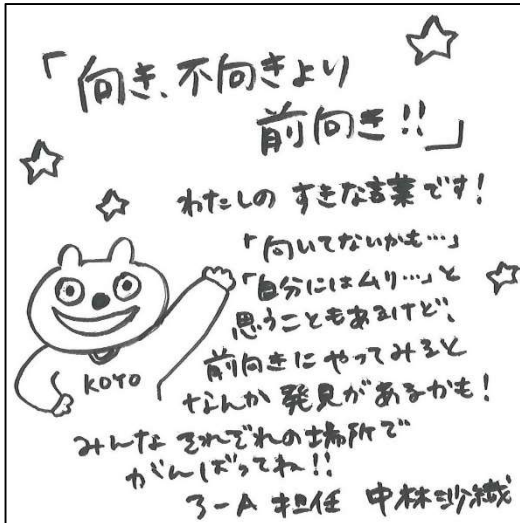 「向き、不向きより
前向き!!」
わたしの すきな言葉です!
「向いてないかも…」
「自分にはムリ…」と
思うこともあるけど、
前向きに やってみると
なんか 発見があるかも!
KOYO
みんな それぞれの場所で
がんばってね!!
3-A 担任 中林沙織